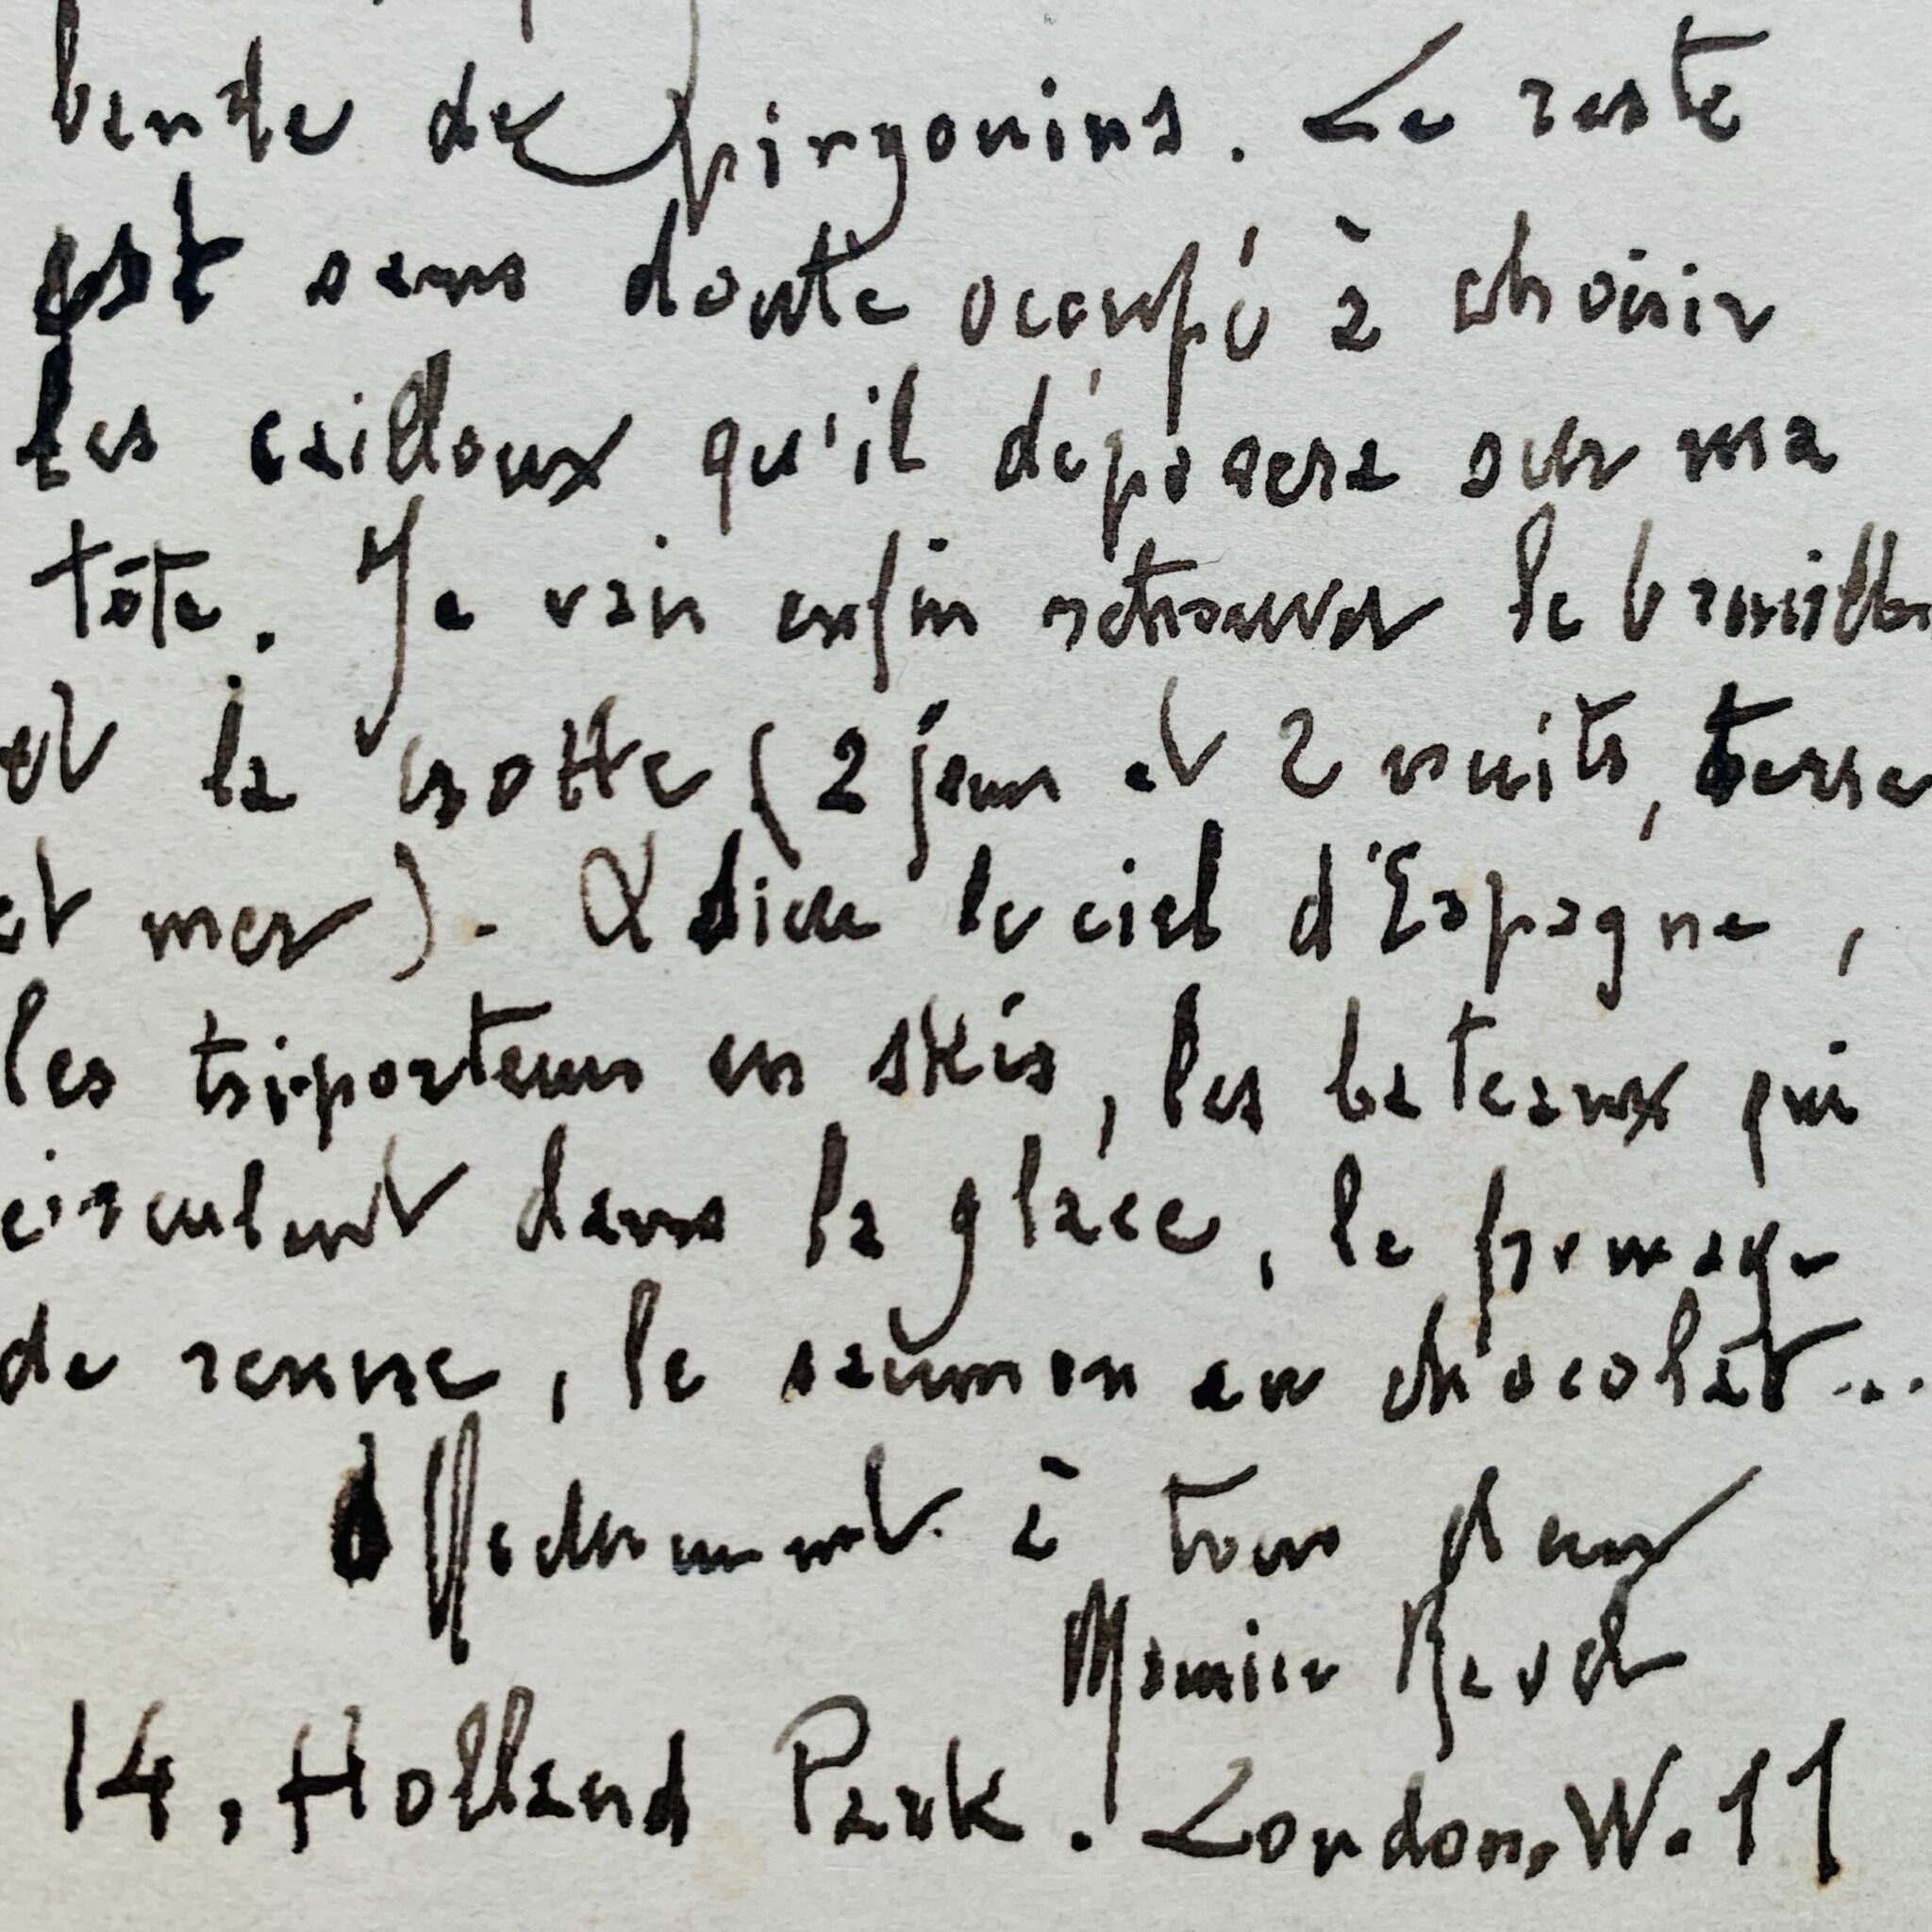 bande de pingouins. Le reste
est sans doute occupé à choisir
les cailloux qu'il déposera sur ma
tête. Je vais enfin retrouver le brouillar
et la crotte (2 jours et 2 nuits, terre
et mer). Adieu le ciel d'Espagne,
les triporteurs en skis, les bateaux qui
circulent dans la glace, le fromage
de renne, le saumon au chocolat...
Affectueusement à tous deux
Maurice Ravel
14, Holland Park. London, W. 11